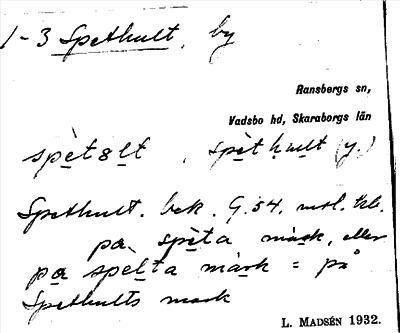 1-3 Spethult, by
Ransbergs sn,
Vadsbo hd, Skaraborgs län
spètslt, spèthult (y.)
Spethult. bek. G. 54.
pa spèta mark, eller
pa spèlta mark = på
Spethults mark
L. MADSÉN 1932.